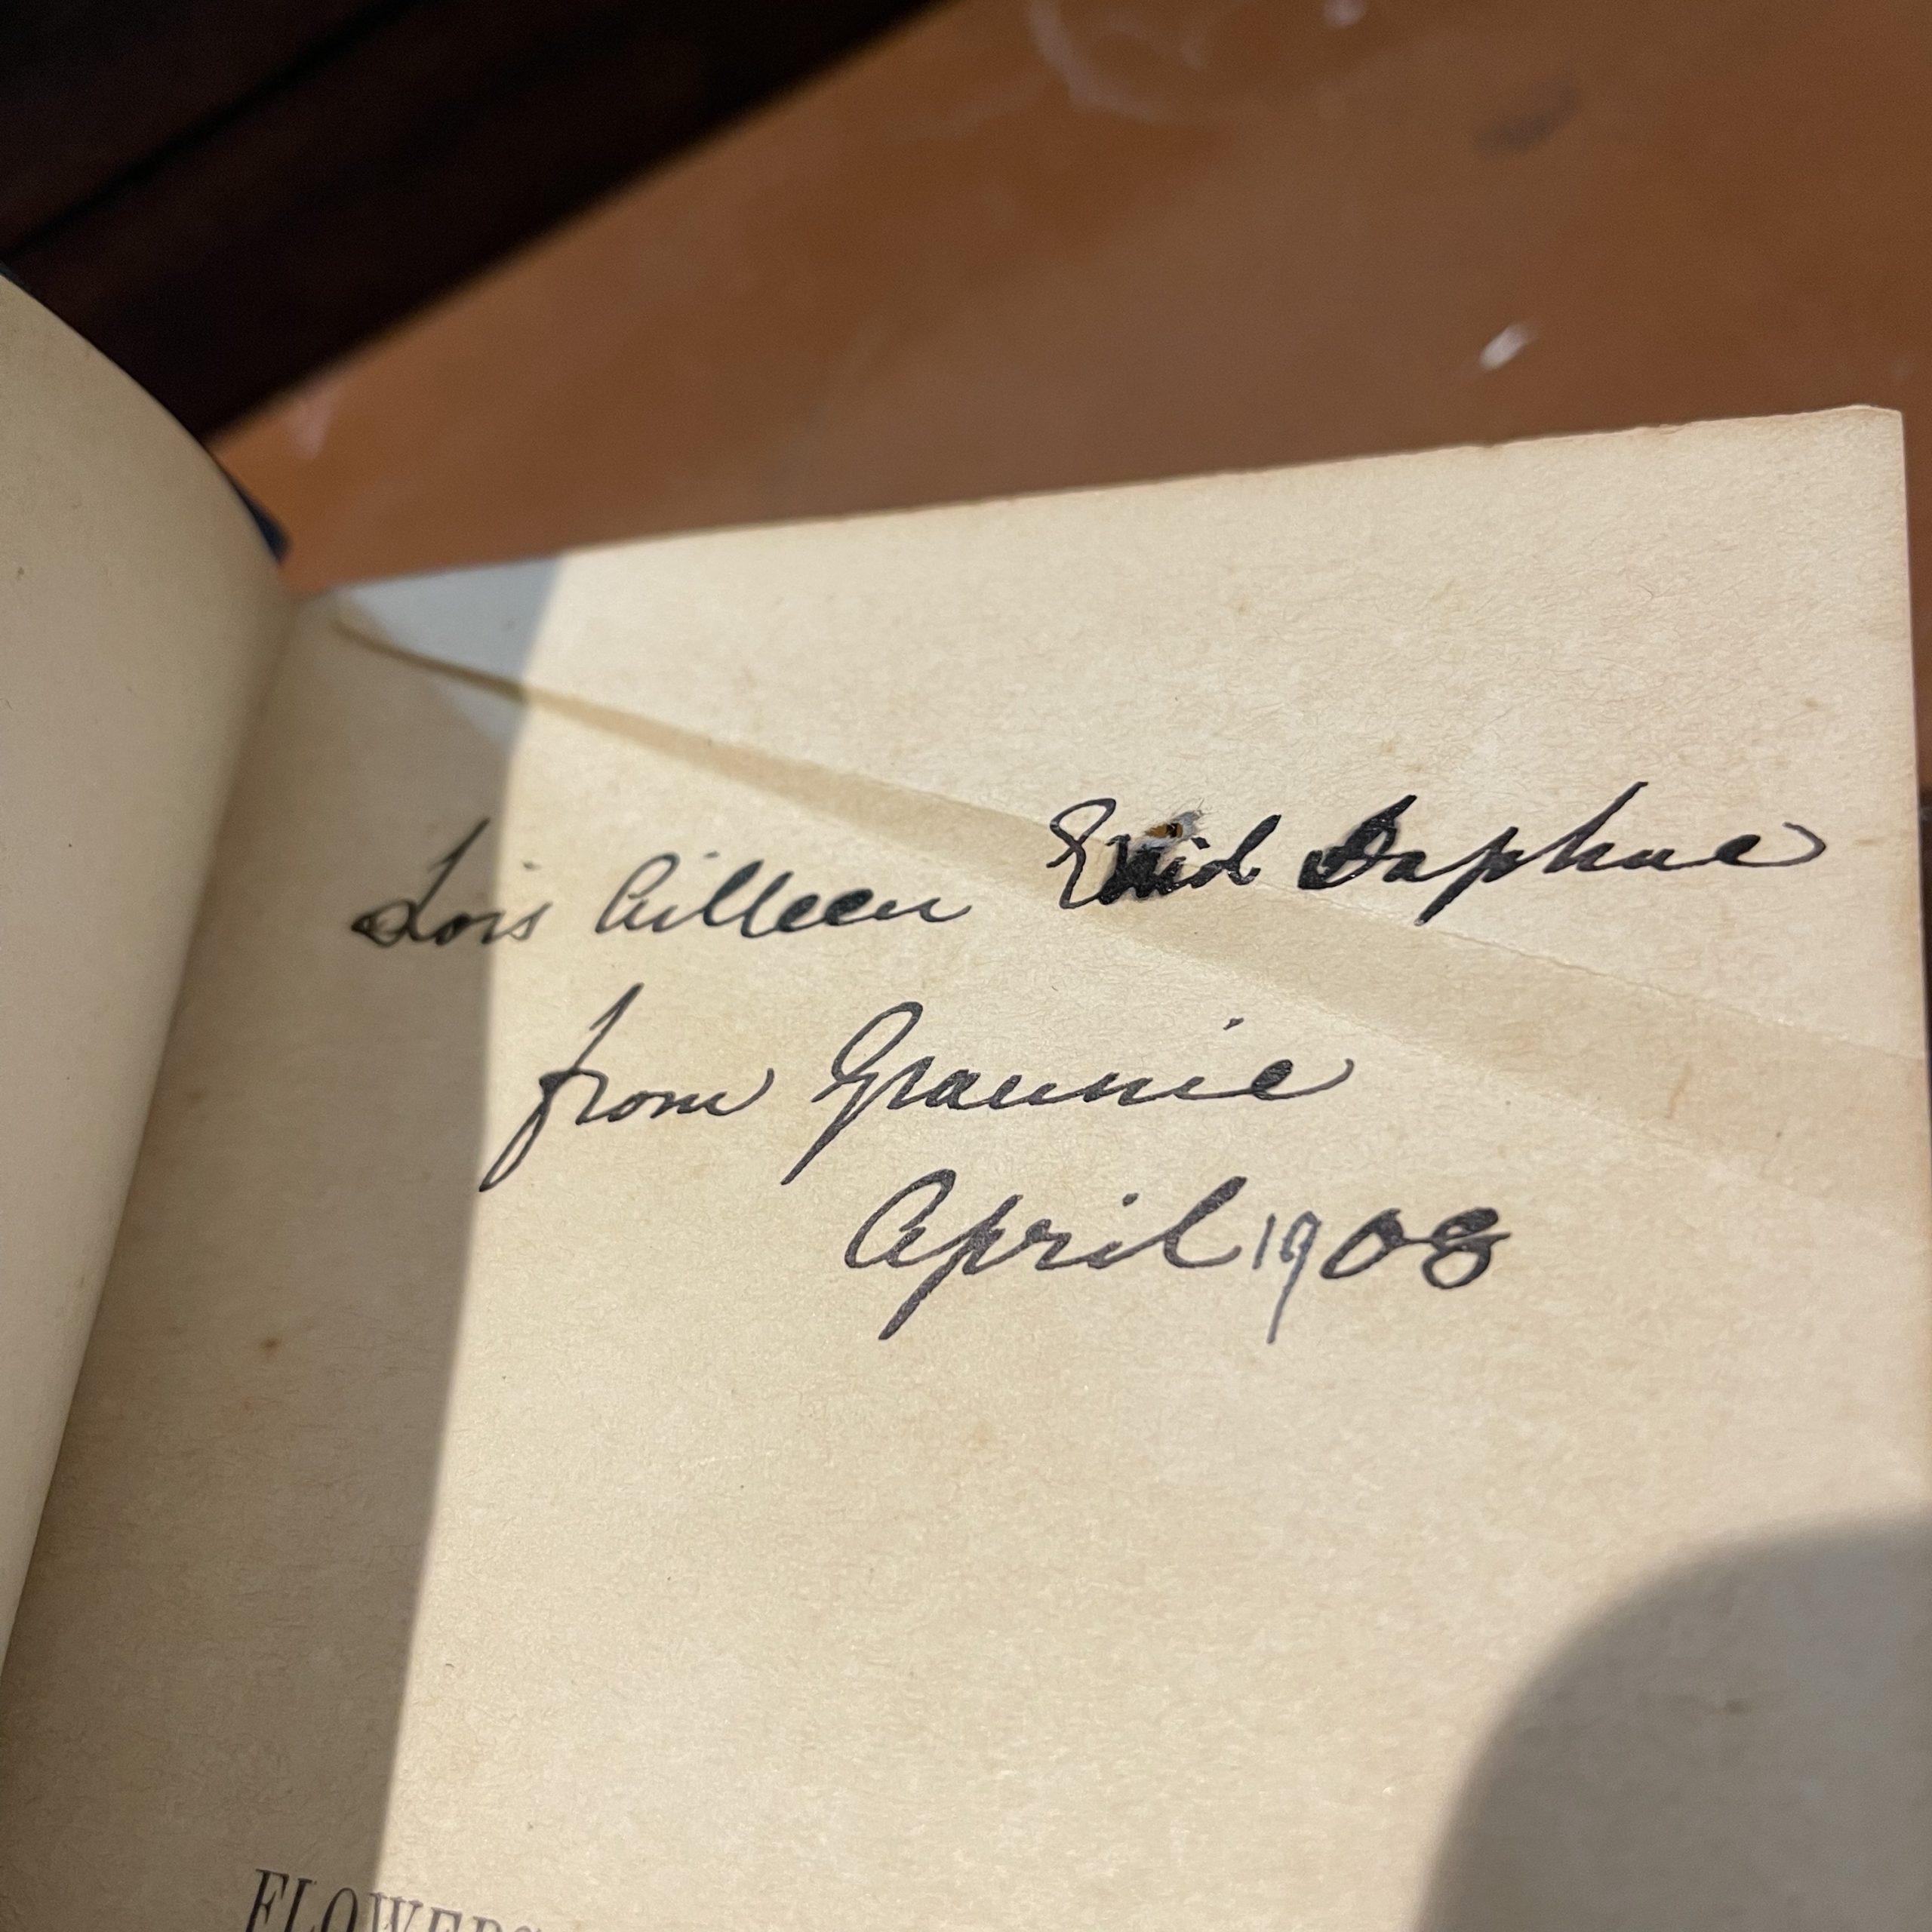 Lois Ailleen Enid Daphne
from Grannie
April 1908
FLOWERS